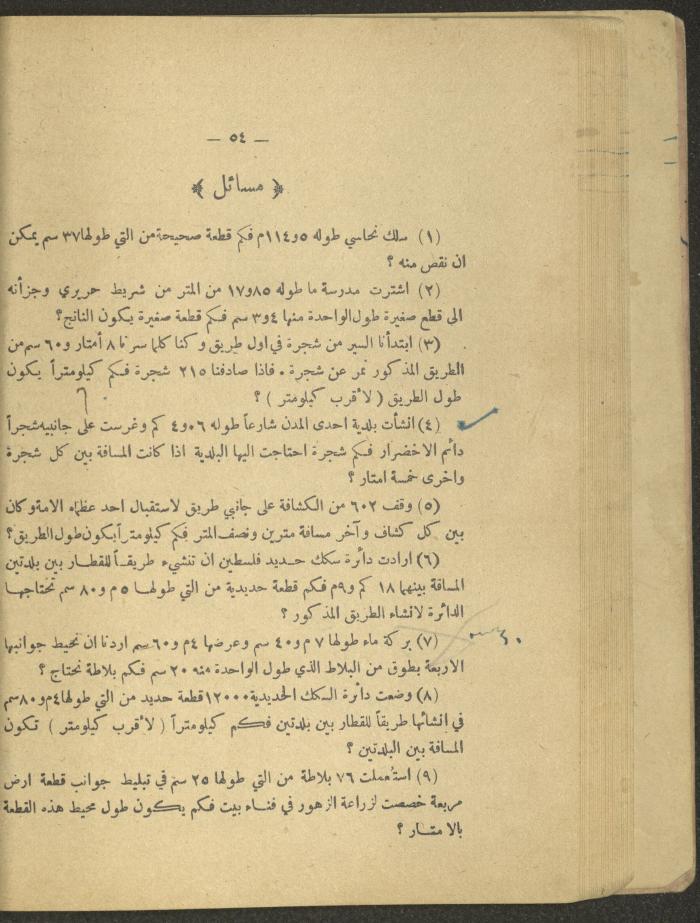 — ٥٤ —
﴿ مسائل ﴾
(١) سلك نحاسي طوله ٥و١١٤م فكم قطعة صحيحة من التي طولها ٣٧ سم يمكن
ان نقص منه ؟
(٢) اشترت مدرسة ما طوله ٨٥و١٧ من المتر من شريط حريري وجزأته
الى قطع صغيرة طول الواحدة منها ٤و٣ سم فكم قطعة صغيرة يكون الناتج ؟
(٣) ابتدأنا السير من شجرة في اول طريق وكنا كلما سرنا ٨ أمتار و٦٠ سم من
الطريق المذكور نمر عن شجرة . فاذا صادفنا ٢١٥ شجرة فكم كيلومتراً يكون
طول الطريق ( لاقرب كيلومتر ) ؟
(٤) انشأت بلدية احدى المدن شارعاً طوله ٠٦و٤ كم وغرست على جانبيه شجراً
دائم الاخضرار فكم شجرة احتاجت اليها البلدية اذا كانت المسافة بين كل شجرة
واخرى خمسة امتار ؟
(٥) وقف ٦٠٢ من الكشافة على جانبي طريق لاستقبال احد عظماء الامة وكان
بين كل كشاف وآخر مسافة مترين ونصف المتر فكم كيلومتراً يكون طول الطريق ؟
(٦) ارادت دائرة سكك حديد فلسطين ان تنشيء طريقاً للقطار بين بلدتين
المسافة بينهما ١٨ كم و٩م فكم قطعة حديدية من التي طولها ٥ م و٨٠ سم تحتاجها
الدائرة لانشاء الطريق المذكور ؟
(٧) بركة ماء طولها ٧ م و٤٠ سم وعرضها ٤م و٦٠ سم اردنا ان نحيط جوانبها
الاربعة بطوق من البلاط الذي طول الواحدة منه ٢٠ سم فكم بلاطة نحتاج ؟
(٨) وضعت دائرة السكك الحديدية ١٢٠٠٠ قطعة حديد من التي طولها ٤م و٨٠سم
في انشائها طريقاً للقطار بين بلدتين فكم كيلومتراً ( لاقرب كيلومتر ) تكون
المسافة بين البلدتين ؟
(٩) استعملت ٧٦ بلاطة من التي طولها ٢٥ سم في تبليط جوانب قطعة ارض
مربعة خصصت لزراعة الزهور في فناء بيت فكم يكون طول محيط هذه القطعة
بالامتار ؟